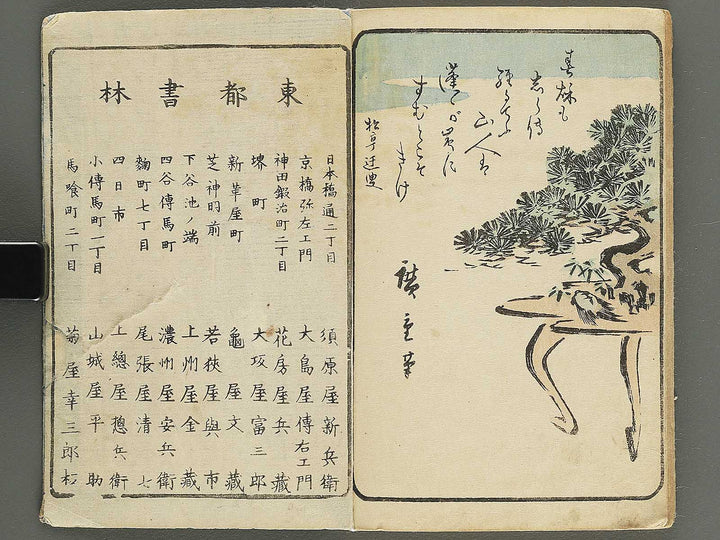 春秋も
山人は
すむとこそきけ
廣重筆
東都書林
日本橋通二丁目 須原屋新兵衛
京橋弥左エ門 大島屋傳右エ門
神田鍛冶町二丁目 花房屋兵藏
堺町 大坂屋富三郎
新革屋町 龜屋文藏
芝神明前 若狹屋與市
下谷池ノ端 上州屋金藏
四谷傳馬町 濃州屋安兵衛
麹町七丁目 尾張屋清七
四日市 上總屋惣兵衛
小傳馬町二丁目 山城屋平助
馬喰町二丁目 菊屋幸三郎板